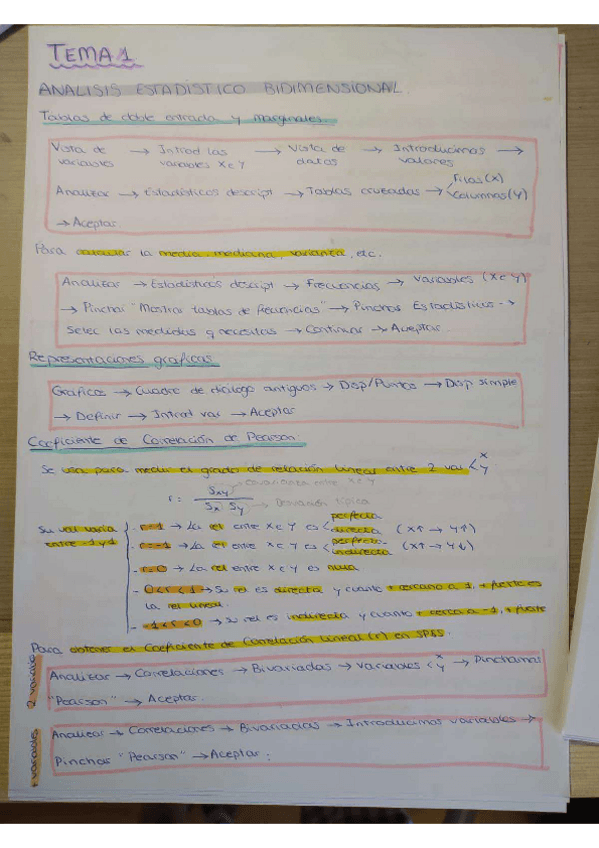 TEMA 1
ANALISIS ESTADÍSTICO BIDIMENSIONAL.
Tablas de doble entrada y marginales.
Vista de variables → Introd las variables X e Y → Vista de datos → Introducimos valores →
Analizar → Estadísticos descript → Tablas cruzadas → Filas (X) Columnas (Y)
→ Aceptar
Para calcular la media, mediana, varianza, etc.
Analizar → Estadísticos descript → Frecuencias → Variables (X e Y)
→ Pinchar "Mostrar tablas de frecuencias" → Pinchar Estadísticos →
Selec las medidas q necesitas → Continuar → Aceptar.
Representaciones graficas
Graficos → Cuadro de diálogo antiguos → Disp/Puntos → Disp simple
→ Definir → Introd var → Aceptar
Coeficiente de Correlación de Pearson
Se usa para medir el grado de relación lineal entre 2 var < X Y
r = Sxy / Sx Sy → covarianza entre X e Y → Desviación típica
Su val varia entre -1 y 1
- r=1 → La rel entre X e Y es < perfecta directa (X↑ → Y↑)
- r=-1 → La rel entre X e Y es < perfecta indirecta (X↑ → Y↓)
- r=0 → La rel entre X e Y es nula
- 0<r<1 → Su rel es directa y cuanto + cercano a 1, + fuerte es
la rel lineal.
- -1<r<0 → Su rel es indirecta y cuanto + cerca a -1, + fuerte
Para obtener el Coeficiente de Correlación Lineal (r) en SPSS.
2 variables
Analizar → Correlaciones → Bivariadas → Variables < X Y → Pinchamos
"Pearson" → Aceptar.
+ variables
Analizar → Correlaciones → Bivariadas → Introducimos variables →
Pinchar "Pearson" → Aceptar.